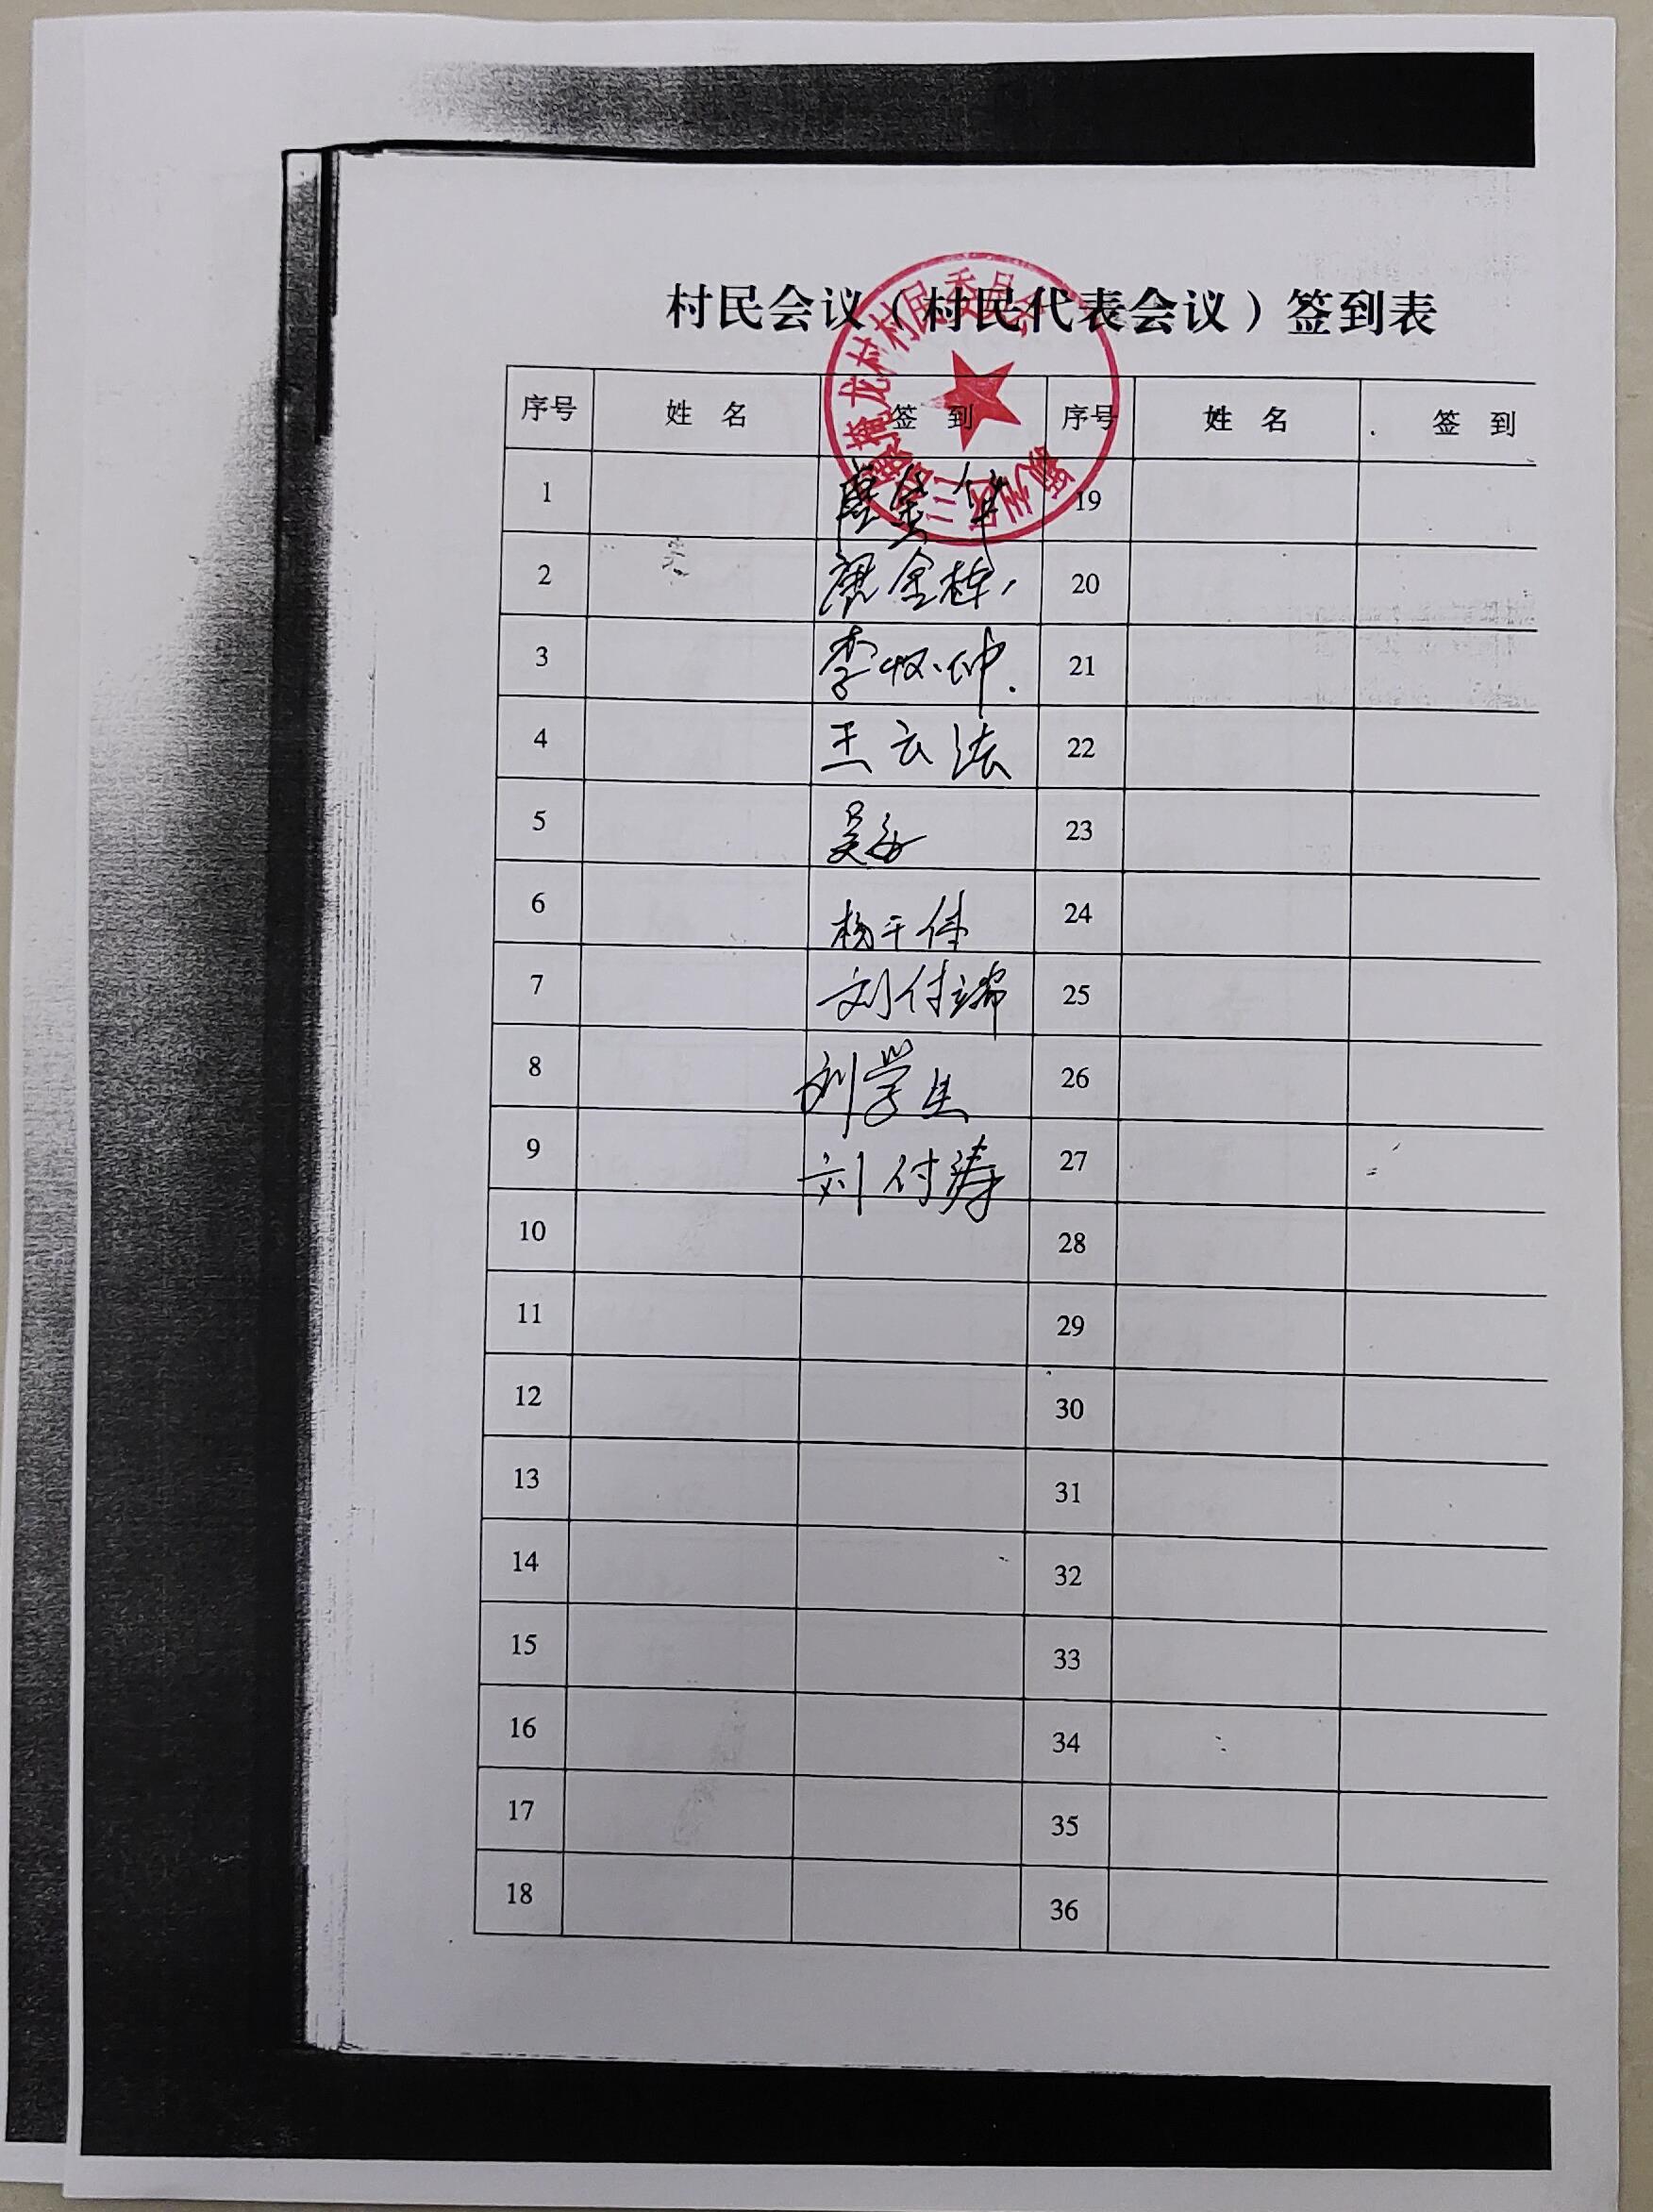 村民会议（村民代表会议）签到表
序号 姓 名 签 到 序号 姓 名 签 到
1 19
2 20
3 李 仲 21
4 王云法 22
5 吴 23
6 杨 伟 24
7 刘付瑞 25
8 刘学生 26
9 刘付涛 27
10 28
11 29
12 30
13 31
14 32
15 33
16 34
17 35
18 36
龙村村民委员会